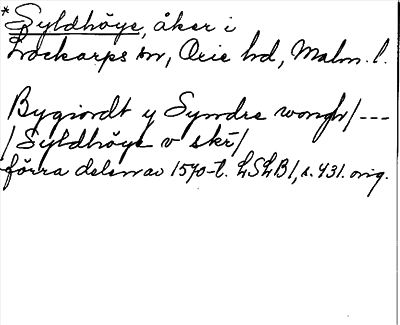 *Syldhöye, åker i
Lockarps sn, Oxie hd, Malm. l.
Bygiordt y Syndre wongh/---
/Syldhöye v skr/
förra delen av 1570-t. LSLB1, s. 431. orig.